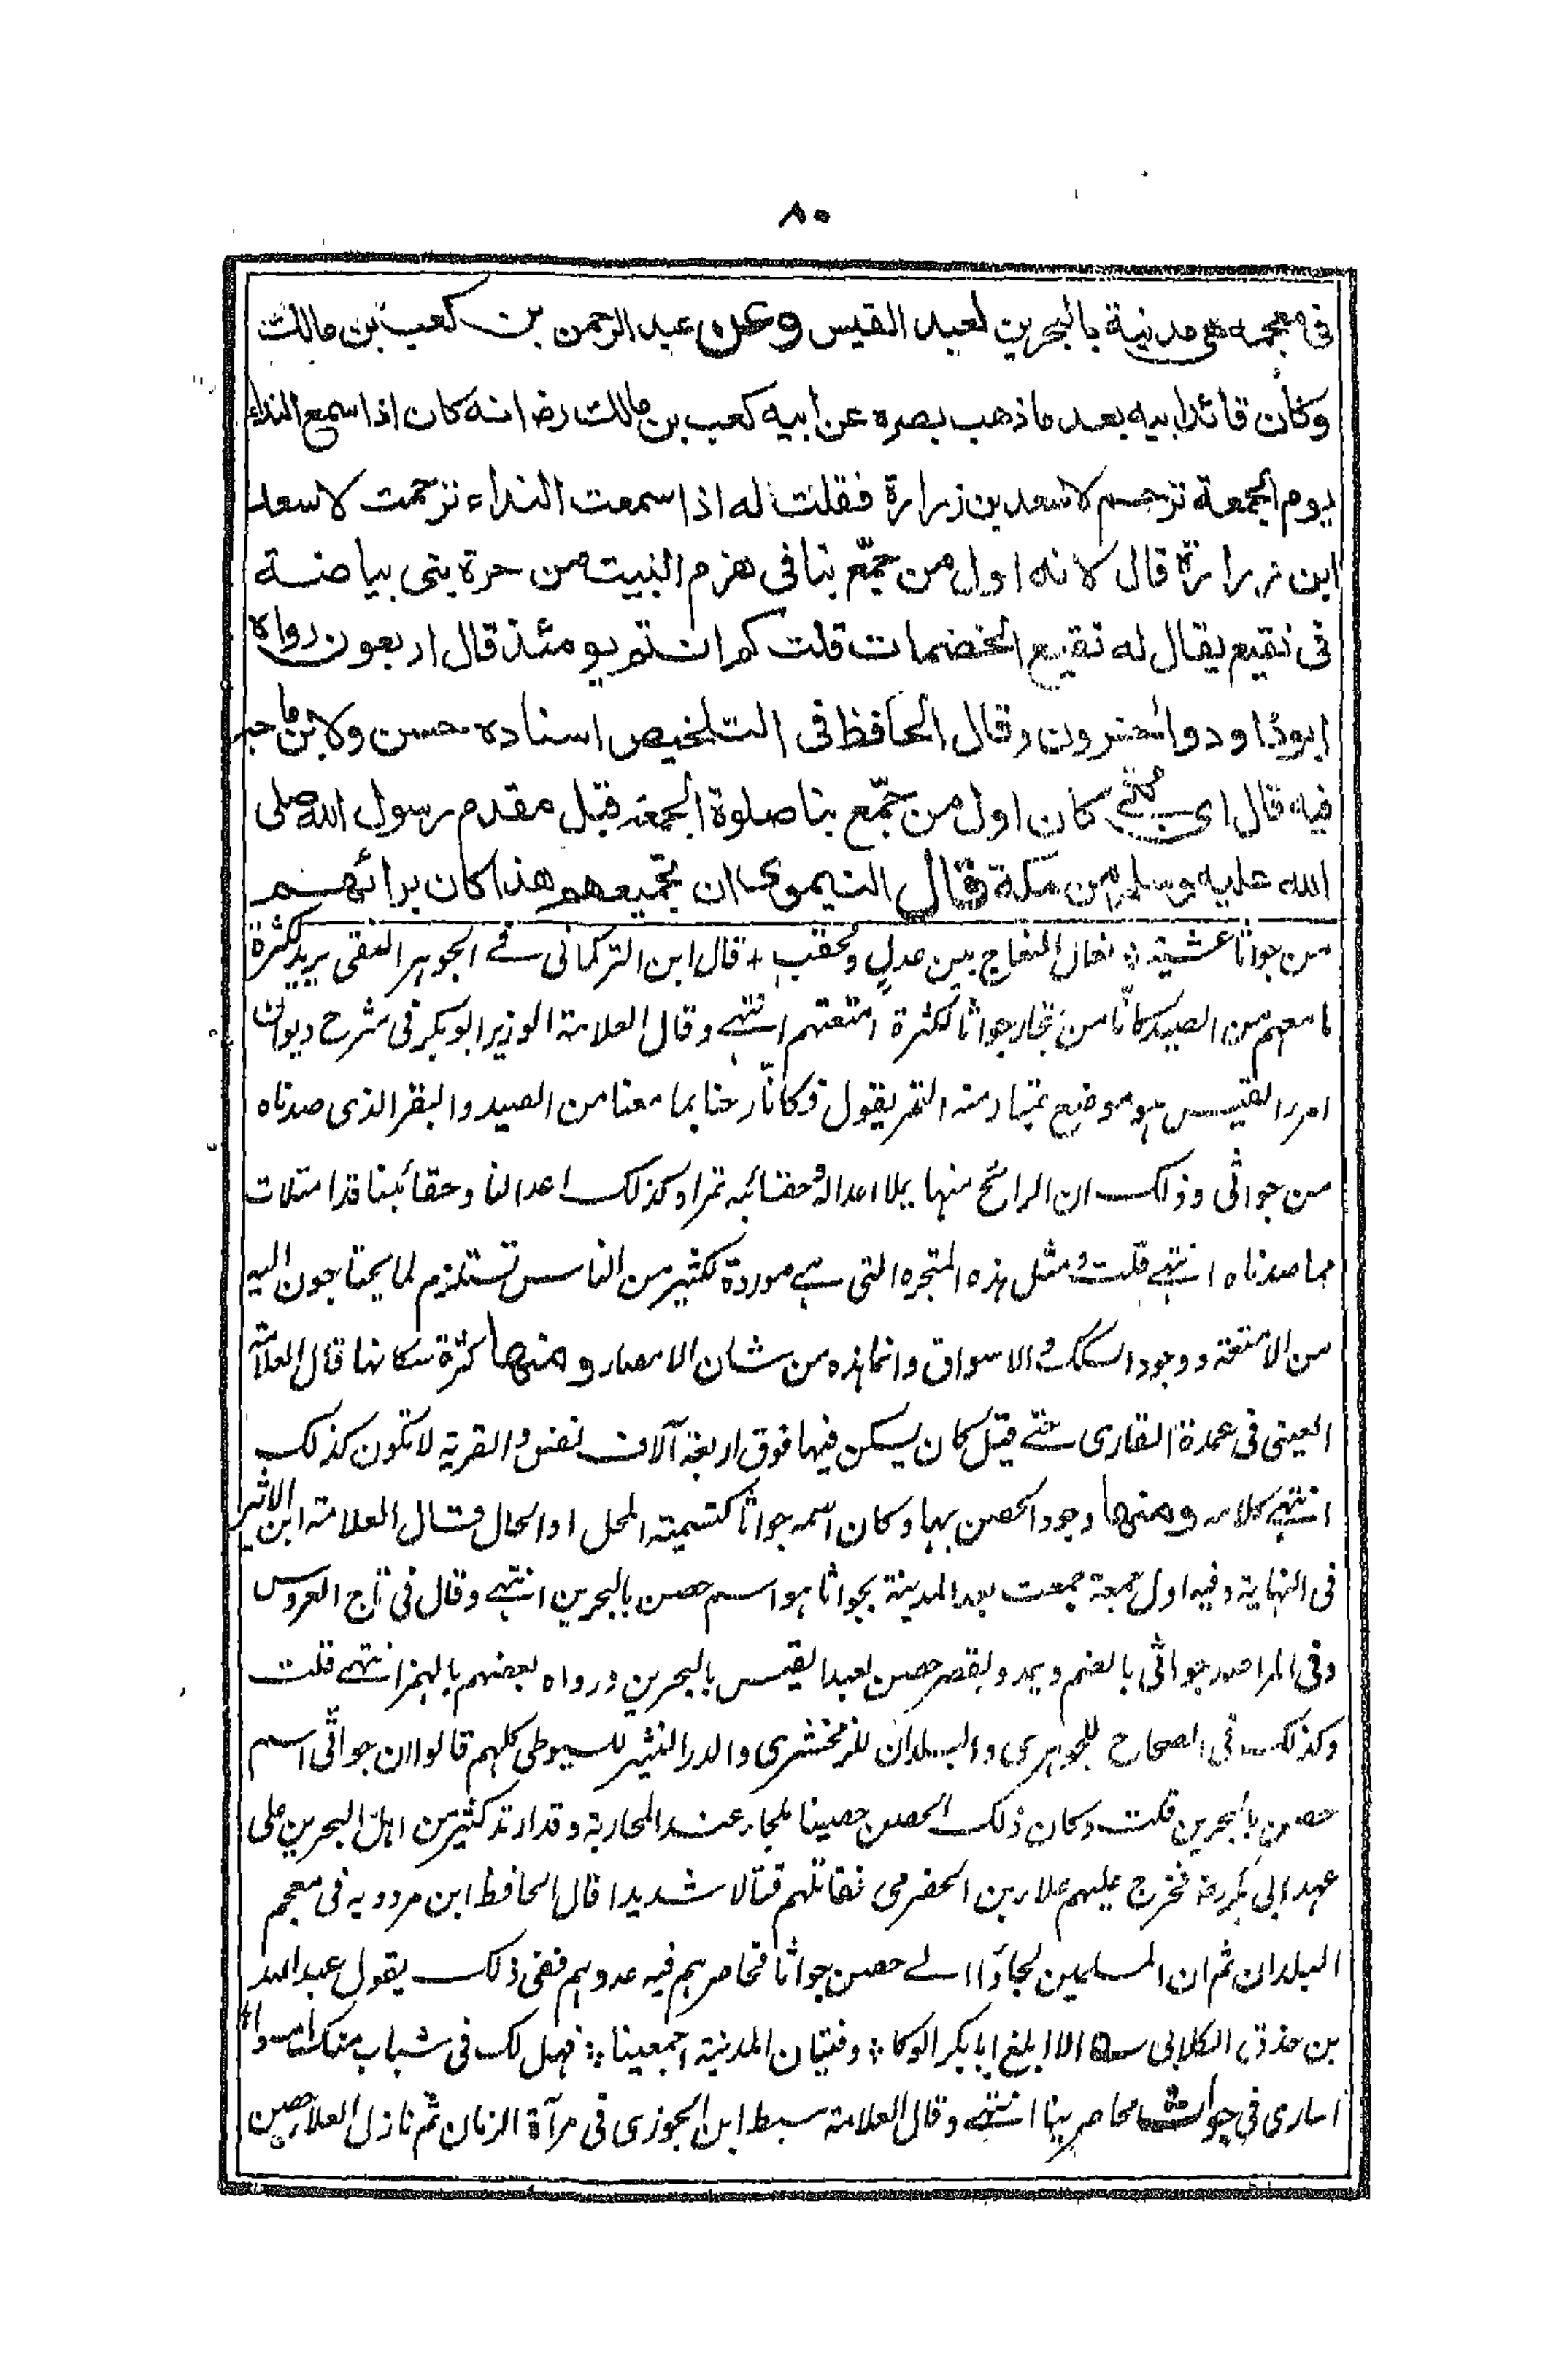 ٨٠
فى معجمه هى مدينة بالبحرين لعبد القيس وعن عبد الرحمن بن كعب بن مالك
وكان قائد ابيه بعد ما ذهب بصره عن ابيه كعب بن مالك رض انه كان اذا سمع النداء
يوم الجمعة ترحم لاسعد بن زرارة فقلت له اذا سمعت النداء ترحمت لاسعد
ابن زرارة قال لانه اول من جمّع بنا فى هزم النبيت من حرة بنى بياضة
فى نقيع يقال له نقيع الخضمات قلت كم انتم يومئذ قال اربعون رواه
ابوداود واٰخرون وقال الحافظ فى التلخيص اسناده حسن ولابن ماجه
فيه قال اى بنى كان اول من جمّع بنا صلوة الجمعة قبل مقدم رسول الله صلى
الله عليه وسلم من مكة قال النيموى ان تجميعهم هذا كان برائهم
من جواثا عشية ؞ نعال النعاج بين عدل ومحقب + قال ابن التركمانى فے الجوهر النقى يريد كثرة
ما معهم من الصيد كانّا من تجار جواثا لكثرة امتعتهم انتهے وقال العلامة الوزير ابو بكر فى شرح ديوان
امرء القيس هو موضع يمتار منه التمر يقول فكانّا رحنا بما معنا من الصيد والبقر الذى صدناه
من جواثى وذلك ان الرائح منها يملا اعداله وحقائبه تمرا وكذلك اعدالنا وحقائبنا قد امتلات
مما صدناه انتهے قلت ومثل هذه المتجره التى هے موردة لكثير من الناس تستلزم لما يحتاجون اليه
من الامتعة ووجود السكك والاسواق وانما هذه من شان الامصار ومنها كثرة سكانها قال العلامة
العينى فى عمدة القارى حتے قيل كان يسكن فيها فوق اربعة آلاف نفس والقرية لا تكون كذلك
انتهے كلامه ومنها وجود الحصن بها وكان اسمه جواثا كتسمية المحل او الحال وقال العلامة ابن الاثير
فى النهاية وفيه اول جمعة جمعت بعد المدينة بجواثا هو اسم حصن بالبحرين انتهے وقال فى تاج العروس
وفى المراصد جواثى بالضم ويمد ويقصر حصن لعبد القيس بالبحرين ورواه بعضهم بالهمز انتهے قلت
وكذلك فى الصحاح للجوهرى والبلدان للزمخشرى والدر النثير للسيوطى كلهم قالوا ان جواثى اسم
حصن بالبحرين قلت وكان ذلك الحصن حصينا ملجاء عند المحاربة وقد ارتد كثير من اهل البحرين على
عهد ابى بكر رضہ فخرج عليهم علاء بن الحضرمى فقاتلهم قتالا شديدا قال الحافظ ابن مردويه فى معجم
البلدان ثم ان المسلمين لجاؤا الے حصن جواثا فحاصرهم فيه عدوهم ففى ذلك يقول عبد الله
بن حذق الكلابى ؎ الا ابلغ ابا بكر الوكا ؞ وفتيان المدينة اجمعينا ؞ فهل لك فى شباب منك امسوا ؞
اسارى فى جواث محاصرينا انتهے وقال العلامة سبط ابن الجوزى فى مرآة الزمان ثم نازل العلاء حصن